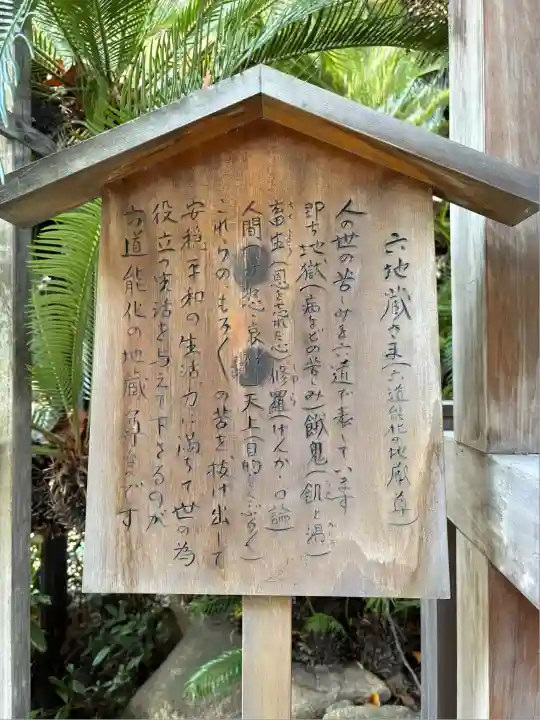 六地蔵さま(六道能化の地蔵尊)
人の世の苦しみを六道で表しています
即ち地獄(病などの苦しみ)餓鬼(飢と渇)
畜生(恩を忘れた心)修羅(けんか・口論)
人間( 悲・哀 )天上(目的
これらのもろ〱の苦を抜け出して
安穏平和の生活力に満ちて世の為
役立つ生活を与えて下さるのが
六道能化の地蔵尊です